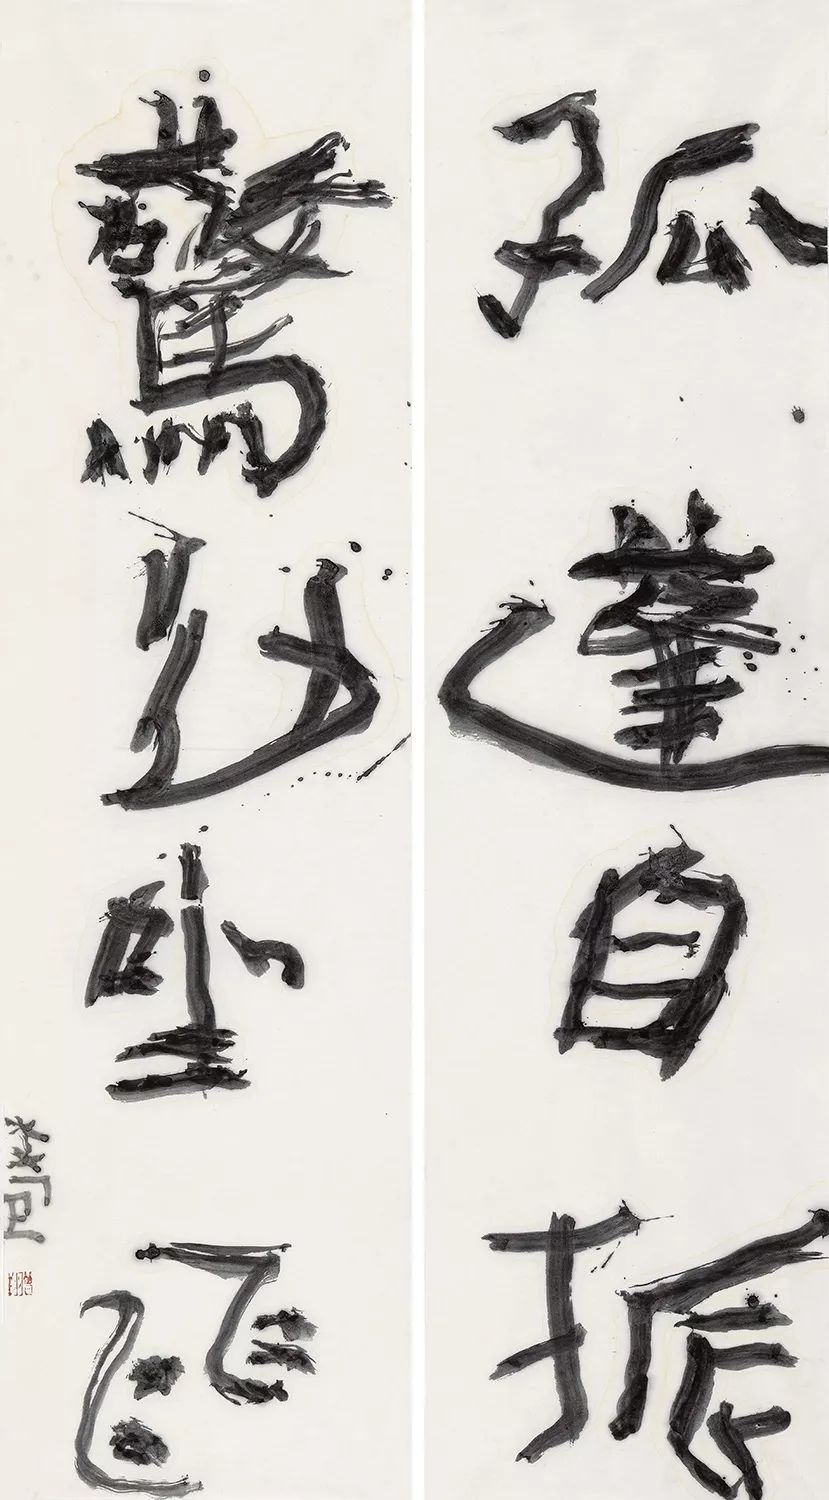 孤蓬自振
驚沙坐飛